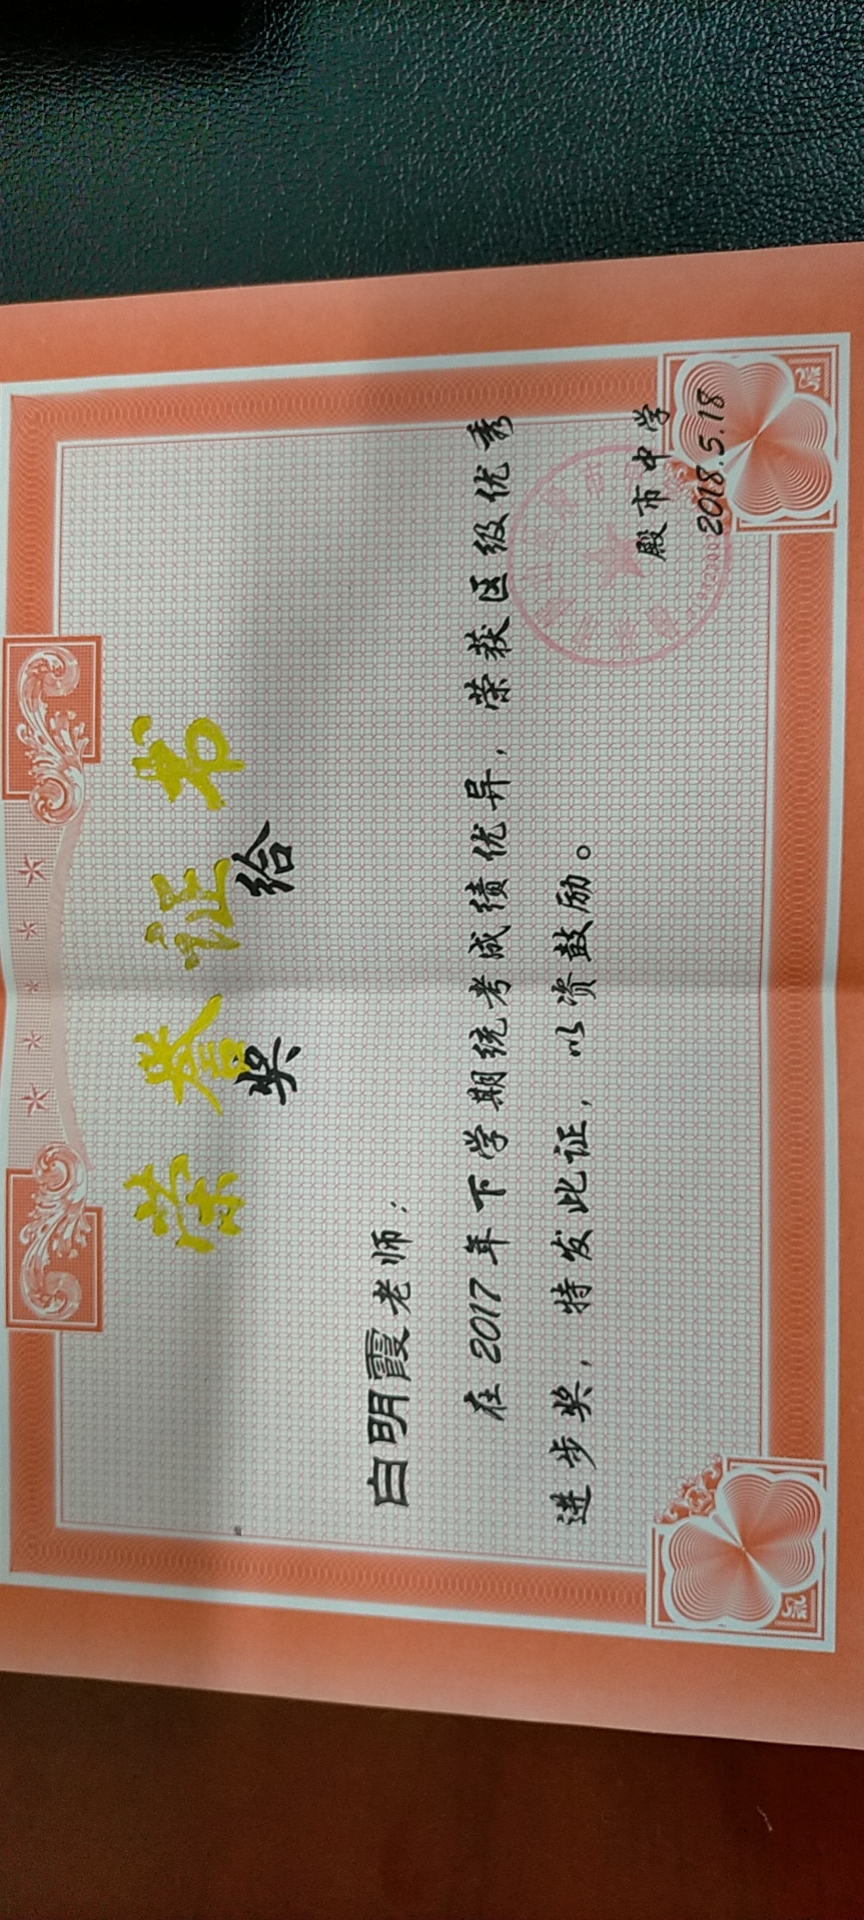 荣誉证书
奖给
白明霞老师：
在2017年下学期统考成绩优异，荣获区级优秀
进步奖，特发此证，以资鼓励。
殿市中学
2018.5.18